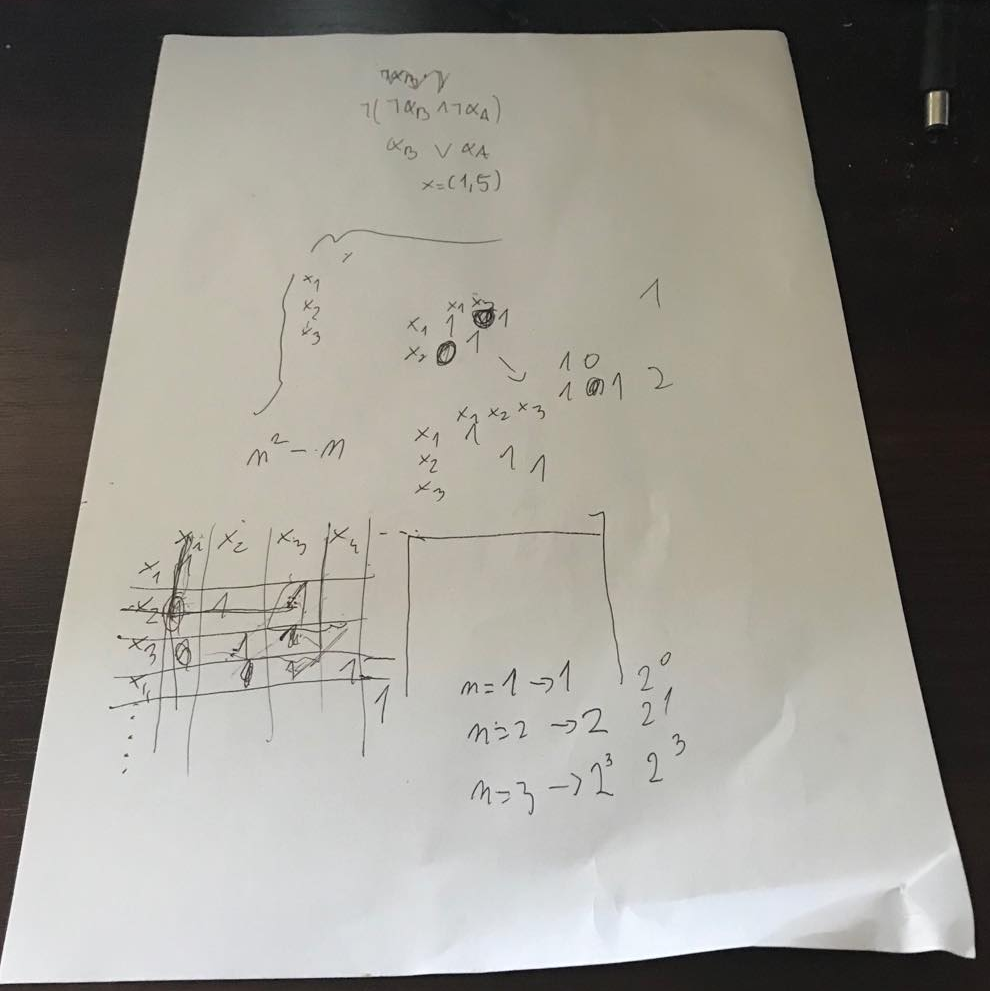 ¬(¬α_B ∧ ¬α_A)
α_B ∨ α_A
x=(1,5)
x_1
x_2
x_3
1
x_1 x_2
x_1 1 1
x_2 1
1 0
1 1 2
x_1 x_2 x_3
x_1 1
x_2 1 1
x_3
n² - n
x_1 x_2 x_3 x_4 ---
x_1
x_2 1
x_3 1
x_4 1
1
n=1 → 1 2^0
n=2 → 2 2^1
n=3 → 2^3 2^3